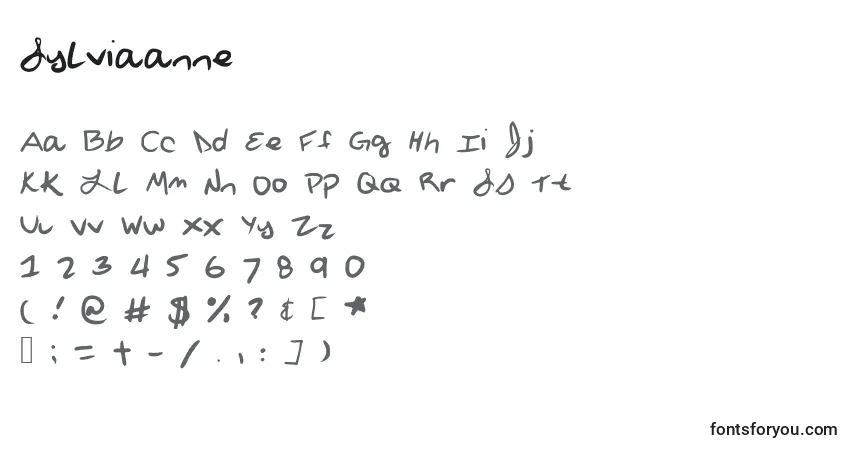 Sylviaanne
Aa Bb Cc Dd Ee Ff Gg Hh Ii Jj
Kk Ll Mm Nn Oo Pp Qq Rr Ss Tt
Uu Vv Ww Xx Yy Zz
1 2 3 4 5 6 7 8 9 0
( ! @ # $ % ? ¢ [ *
; = + - / . , : ] )
fontsforyou.com